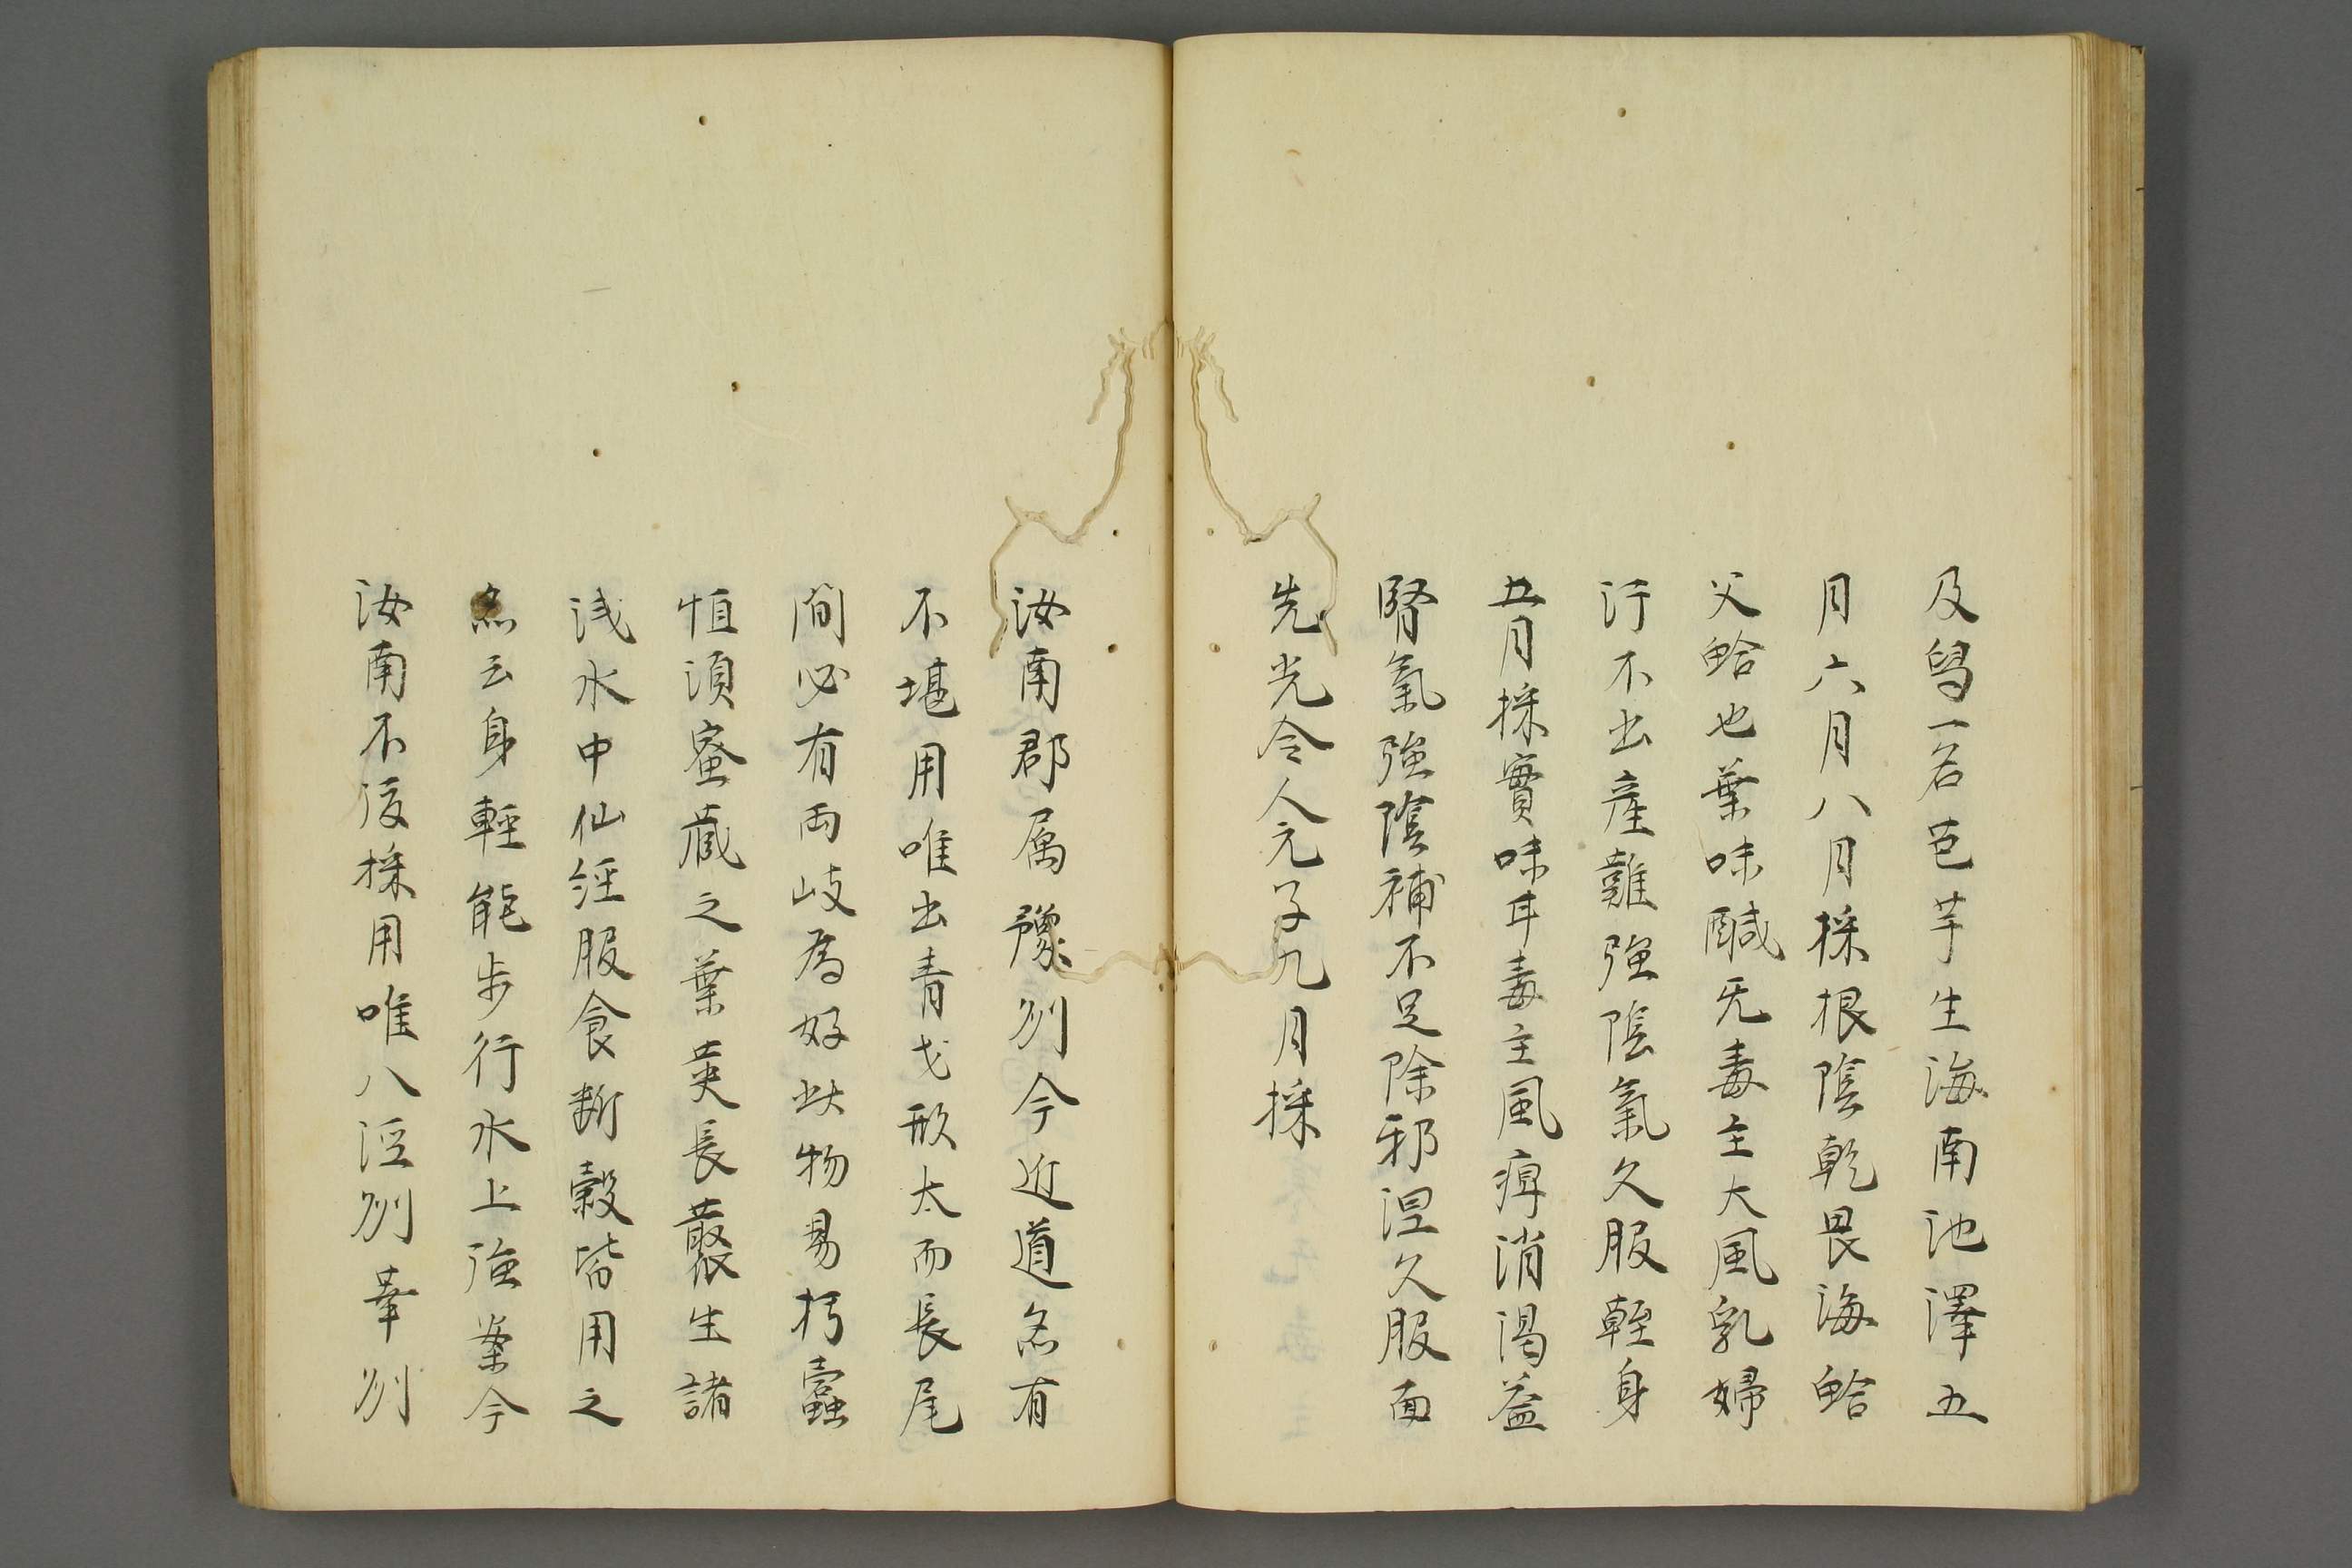 及舄一名芒芋生海南池澤五
月六月八月採根陰乾畏海蛤
父蛤也葉味醎无毒主大風乳婦
汙不出産難強陰氣久服輕身
五月採實味耳毒主風痺消渇益
腎氣強陰補不足除邪湿久服面
先光令人元子九月採
汝南郡属豫州今近道尒有
不堪用唯出青弋形太而長尾
間必有両岐為好此物易朽蠹
恒湏蜜蔵之葉荚長䕺生諸
浅水中仙經服食断榖皆用之
尒云身輕能步行水上強案今
汝南不復採用唯八涇州華州